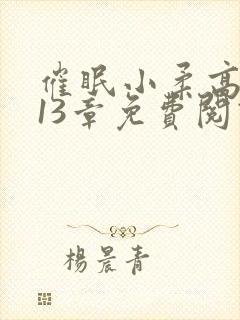 催眠小柔高
13章免費閱
楊晨青